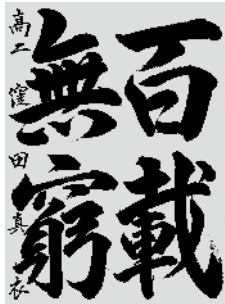 百載
無窮
高二 窪田真衣